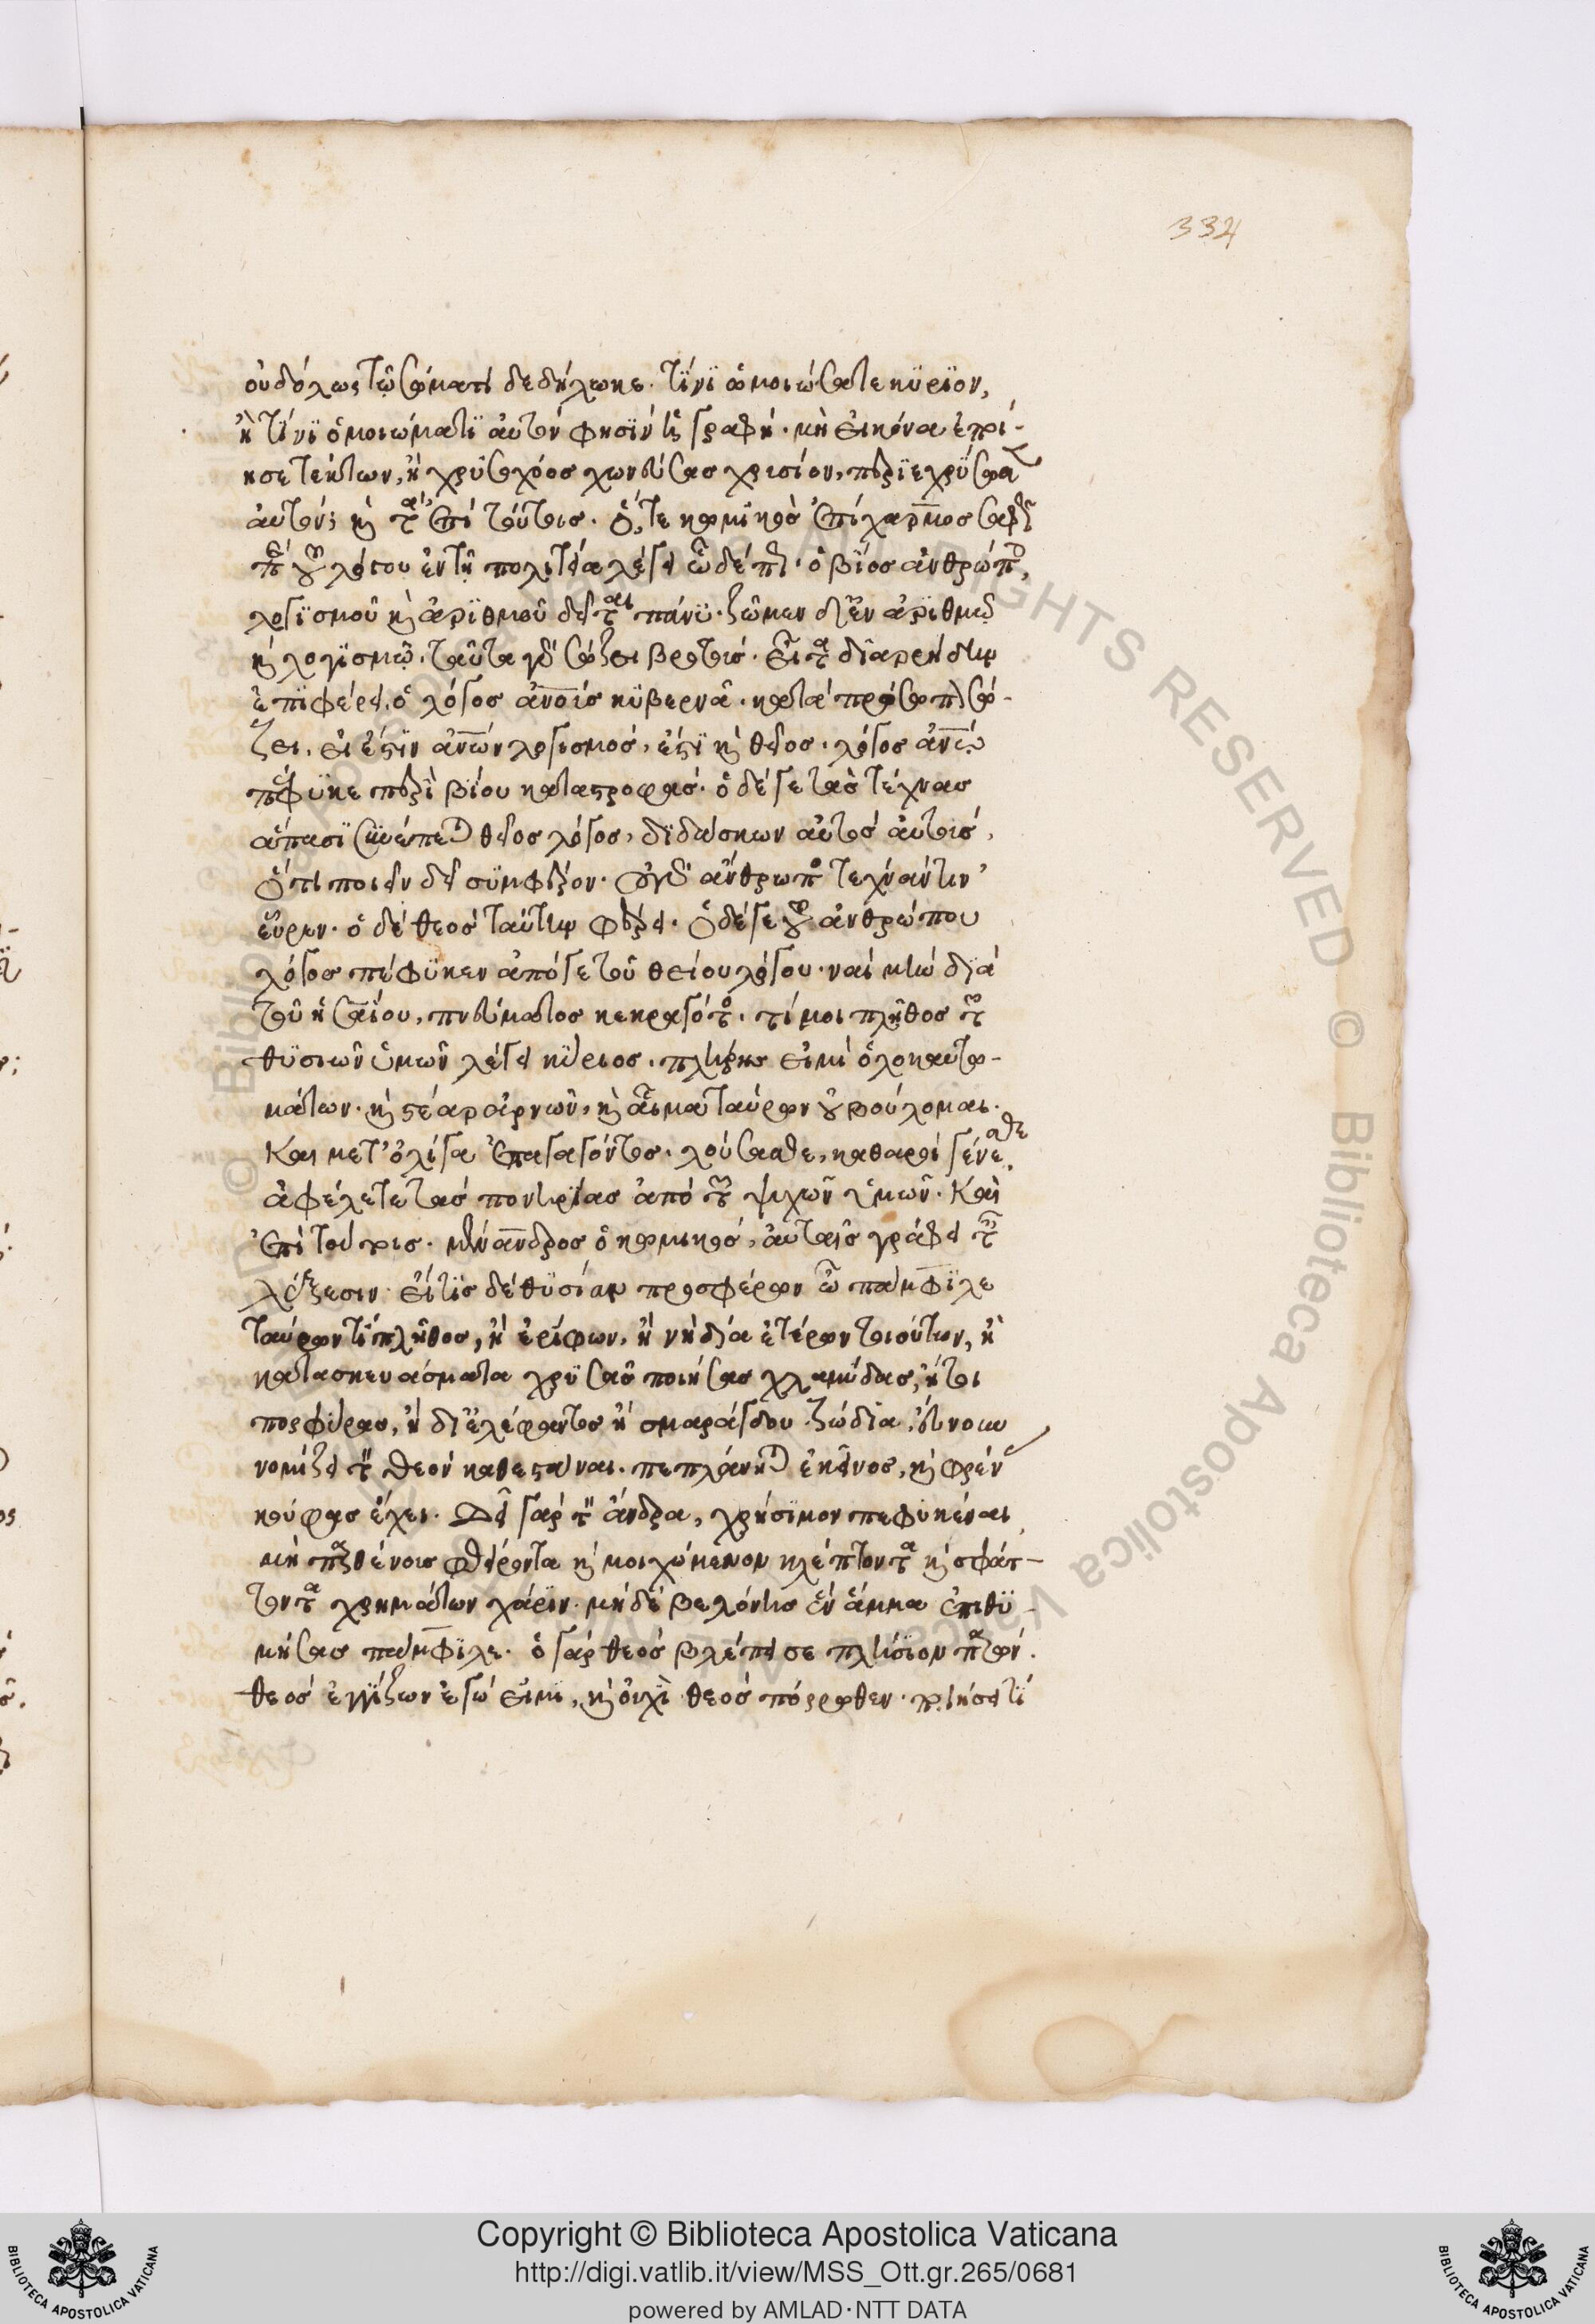 334
οὐδόλως τῷ σώματι δεδήλωκε. τίνϊ ὡμοιώσατε κύριον,
ἢ τίνϊ ὁμοιώματϊ αὐτόν φησϊν ἡ γραφή. μὴ εἰκόνα ἐποί-
ησε τέκτων, ἢ χρϋσοχόος χωνεύσας χρυσίον, περϊεχρΰσωσεν
αὐτόν; καὶ τὰ ἐπὶ τούτοις. ὅ,τε κωμϊκὸς ἐπίχαρμος σαφῶς
περὶ τοῦ λόγου ἐν τῇ πολιτεία λέγει ὧδέ πως. ὁ βϊος ἀνθρώποις,
λογϊσμοῦ καὶ ἀρϊθμοῦ δεῖται πάνϋ. ζῶμεν δὲ ἐν ἀρϊθμῷ
καὶ λογϊσμῷ. ταῦτα γὰρ σώζει βροτούς. εἶτα διαρρήδην
ἐπϊφέρει. ὁ λόγος ἀνοις κϋβερνᾶ. κατὰ πρόσωπον σώ-
ζει. εἰ ἔστϊν ἀνων λογισμός, ἔστϊ καὶ θεῖος. λόγος ἀνω
πέφϋκε περϊ βίου καταστροφάς. ὁ δέ γε τὰς τέχνας
ἅπασϊ συνέπεται θεῖος λόγος, δϊδάσκων αὐτὸς αὐτούς,
ὅτι ποιεῖν δεῖ σϋμφέρον. οὐ γὰρ ἄνθρωπος τέχναν τιν'
εὗρεν. ὁ δέ θεὸς ταύτην φέρει. ὁ δέ γε τοῦ ἀνθρώπου
λόγος πέφϋκεν ἀπό γε τοῦ θείου λόγου. ναὶ μὴν διὰ
τοῦ ἡσαΐου, πνεύματος κεκραγότος. τί μοι πλῆθος τῶν
θϋσιῶν ὑμῶν λέγει κύριος. πλήρης εἰμὶ ὁλοκαυτω-
μάτων. καὶ στέαρ ἀρνῶν, καὶ αἷμα ταύρων οὐ βούλομαι.
Και μετ' ὀλίγα ἐπαγαγόντος. λούσασθε, καθαροὶ γένεσθε
ἀφέλετε τὰς πονηρίας ἀπό τῶν ψυχῶν ὑμῶν. Καὶ
ἐπὶ τούτοις. μένανδρος ὁ κωμικός, αὐταῖς γράφει ταῖς
λέξεσιν. εἴ τϊς δέ θϋσίαν προσφέρων ὦ πάμφϊλε
ταύρων τί πλῆθος, ἢ ἐρίφων, ἢ νὴ δία ἑτέρων τοιούτων, ἢ
κατασκευάσματα χρϋσᾶς ποιήσας χλαμύδας, ἤτοι
πορφύρας, ἢ δι' ἐλέφαντος ἢ σμαράγδου ζώδια, εὔνουν
νομίζει τὸν θεόν καθεστάναι. πεπλάνηται ἐκεῖνος, καὶ φρένας
κούφας ἔχει. Δεῖ γάρ τὸν ἄνδρα, χρήσϊμον πεφϋκέναι
μὴ παρθένοις φθείροντα καὶ μοιχώμενον κλέπτοντα καὶ σφάτ-
τοντα χρημάτων χάρϊν. μὴ δὲ βελόνης ἓν ἅμμα ἐπιθϋ-
μήσας πάμφϊλε. ὁ γάρ θεὸς βλέπει σε πλησϊον παρών.
θεὸς ἐγγΐζων ἐγώ εἰμϊ, καὶ οὐχὶ θεὸς πόρρωθεν. ποιήσει τϊ
Copyright © Biblioteca Apostolica Vaticana
http://digi.vatlib.it/view/MSS_Ott.gr.265/0681
powered by AMLAD·NTT DATA